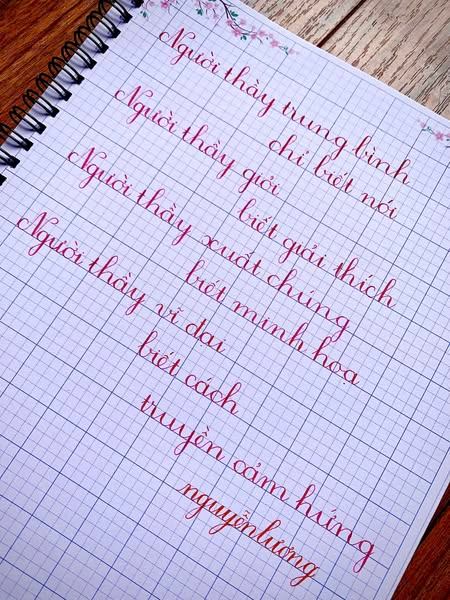 Người thầy trung bình
chỉ biết nói
Người thầy giỏi
biết giải thích
Người thầy xuất chúng
biết minh hoạ
Người thầy vĩ đại
biết cách
truyền cảm hứng
nguyễnlương